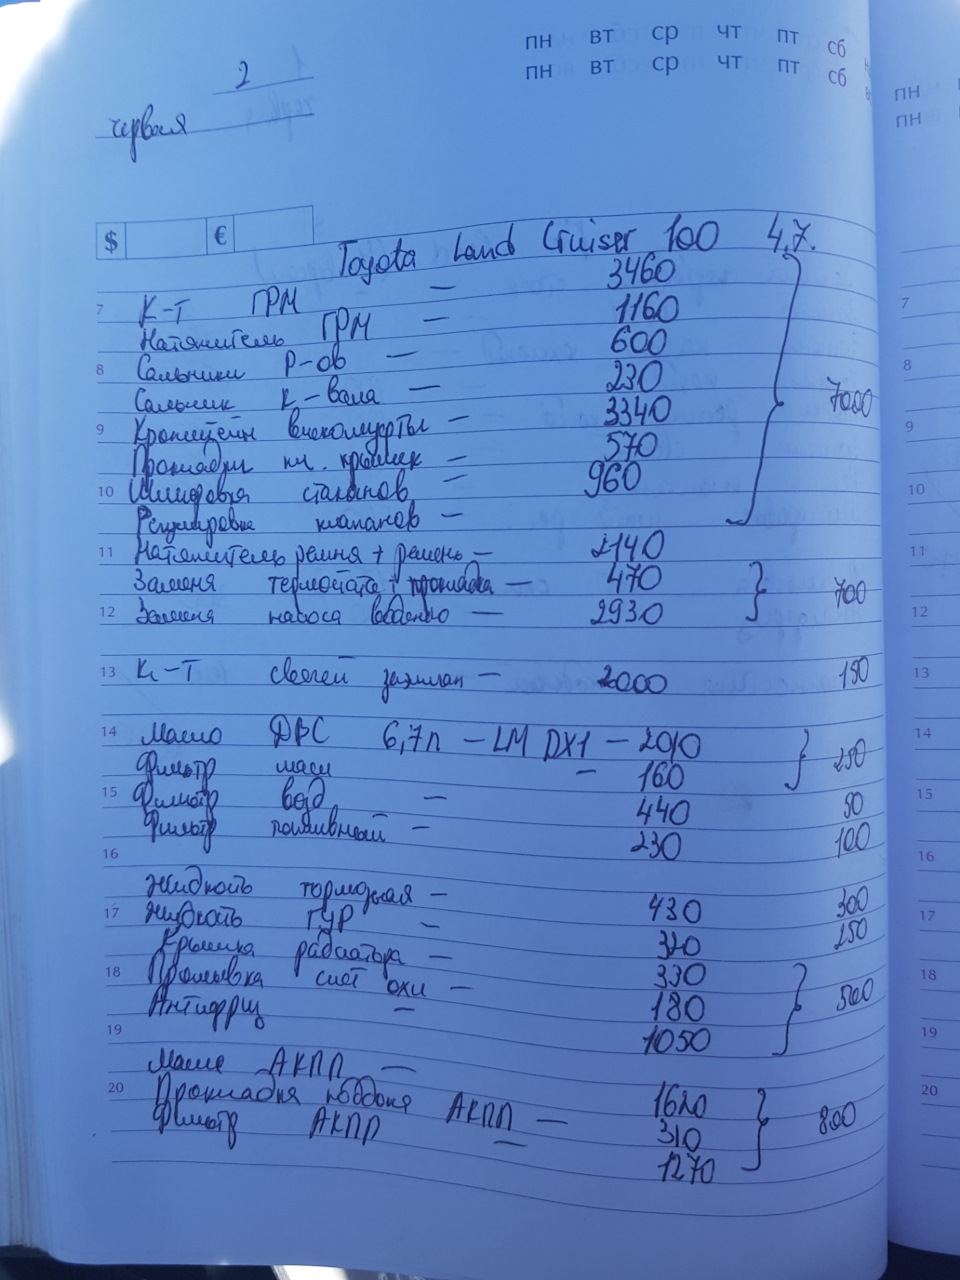 пн вт ср чт пт сб
пн вт ср чт пт сб
пн
пн
2
червня
$ €
Toyota Land Cruiser 100 4.7.
7 К-т ГРМ — 3460
Натяжитель ГРМ — 1160
8 Сальники Р-ов — 600
Сальник к-вала — 230
9 Кронштейн вискомуфты — 3340
Прокладки кл. крышек — 570
10 Шлифовка стаканов — 960
Регулировка клапанов — 7000
11 Натяжитель ремня + ремень — 2140
Замена термостата + прокладка — 470
12 Замена насоса водяного — 2930 700
13 К-т свечей зажиган — 2000 150
14 Масло ДВС 6,7л — LM DX1 — 2010
Фильтр масл — 160 250
15 Фильтр возд — 440 50
Фильтр топливный — 230 100
16
Жидкость тормозная — 430 300
17 Жидкость ГУР — 320 250
Крышка радиатора — 330
18 Промывка сист охл — 180 500
Антифриз — 1050
19
Масло АКПП — 1620
20 Прокладка поддона АКПП — 310 800
Фильтр АКПП — 1270
7
8
9
10
11
12
13
14
15
16
17
18
19
20